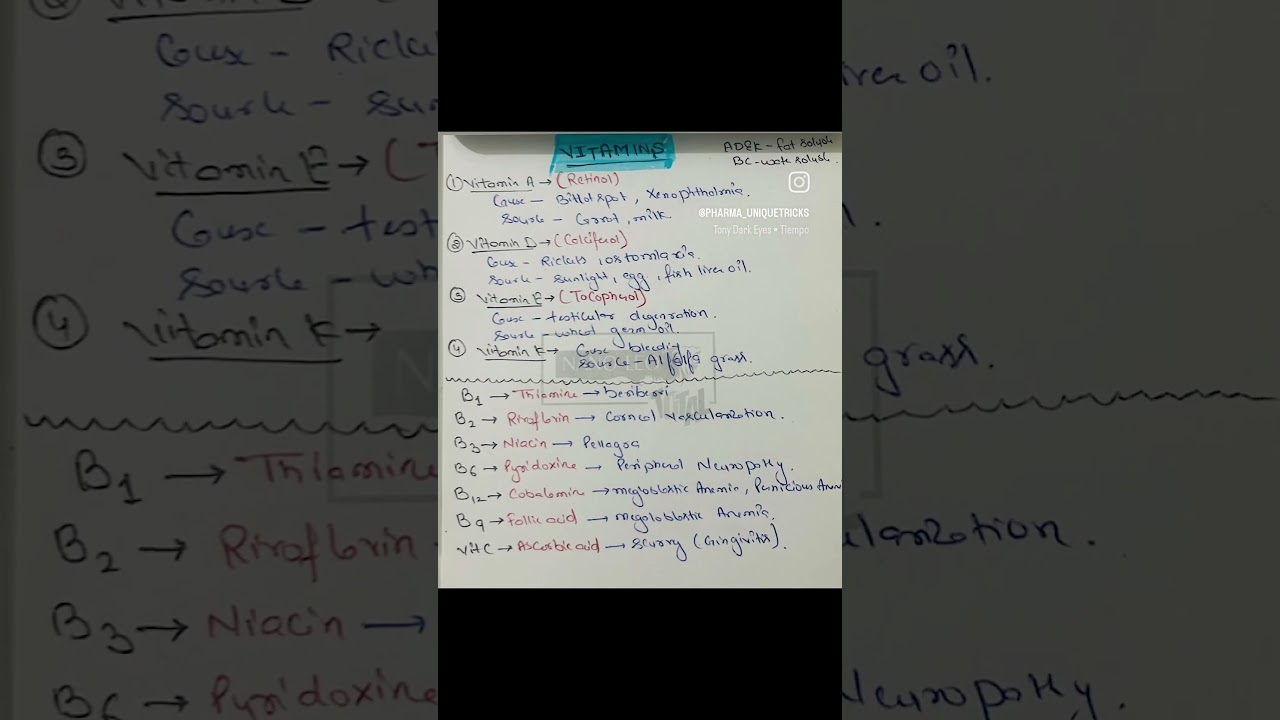 VITAMINS
ADEK - fat soluble
BC - water soluble.
① Vitamin A → (Retinol)
Cause - Bitot spot, Xerophthalmia.
Source - Carrot, milk
@PHARMA_UNIQUETRICKS
Tony Dark Eyes • Tiempo
② Vitamin D → (Calciferol)
Cause - Rickets, ostomlaxia.
Source - sunlight, egg, fish liver oil.
③ Vitamin E → (Tocopherol)
Cause - testicular degenration.
Source - wheat germ oil.
④ Vitamin K → Cause bleeding
Source - Alfalfa grass.
B1 → Thiamine → beriberi
B2 → Rivoflorin → Corneal vascularization.
B3 → Niacin → Pellagra
B6 → Pyridoxine → Peripheral Neuropathy.
B12 → Cobalamin → megloblastic Anemia, Pernicious Anem
B9 → Follic acid → megaloblastic Anemia.
Vit C → Ascorbic acid → Scurvy (Gingivitis).